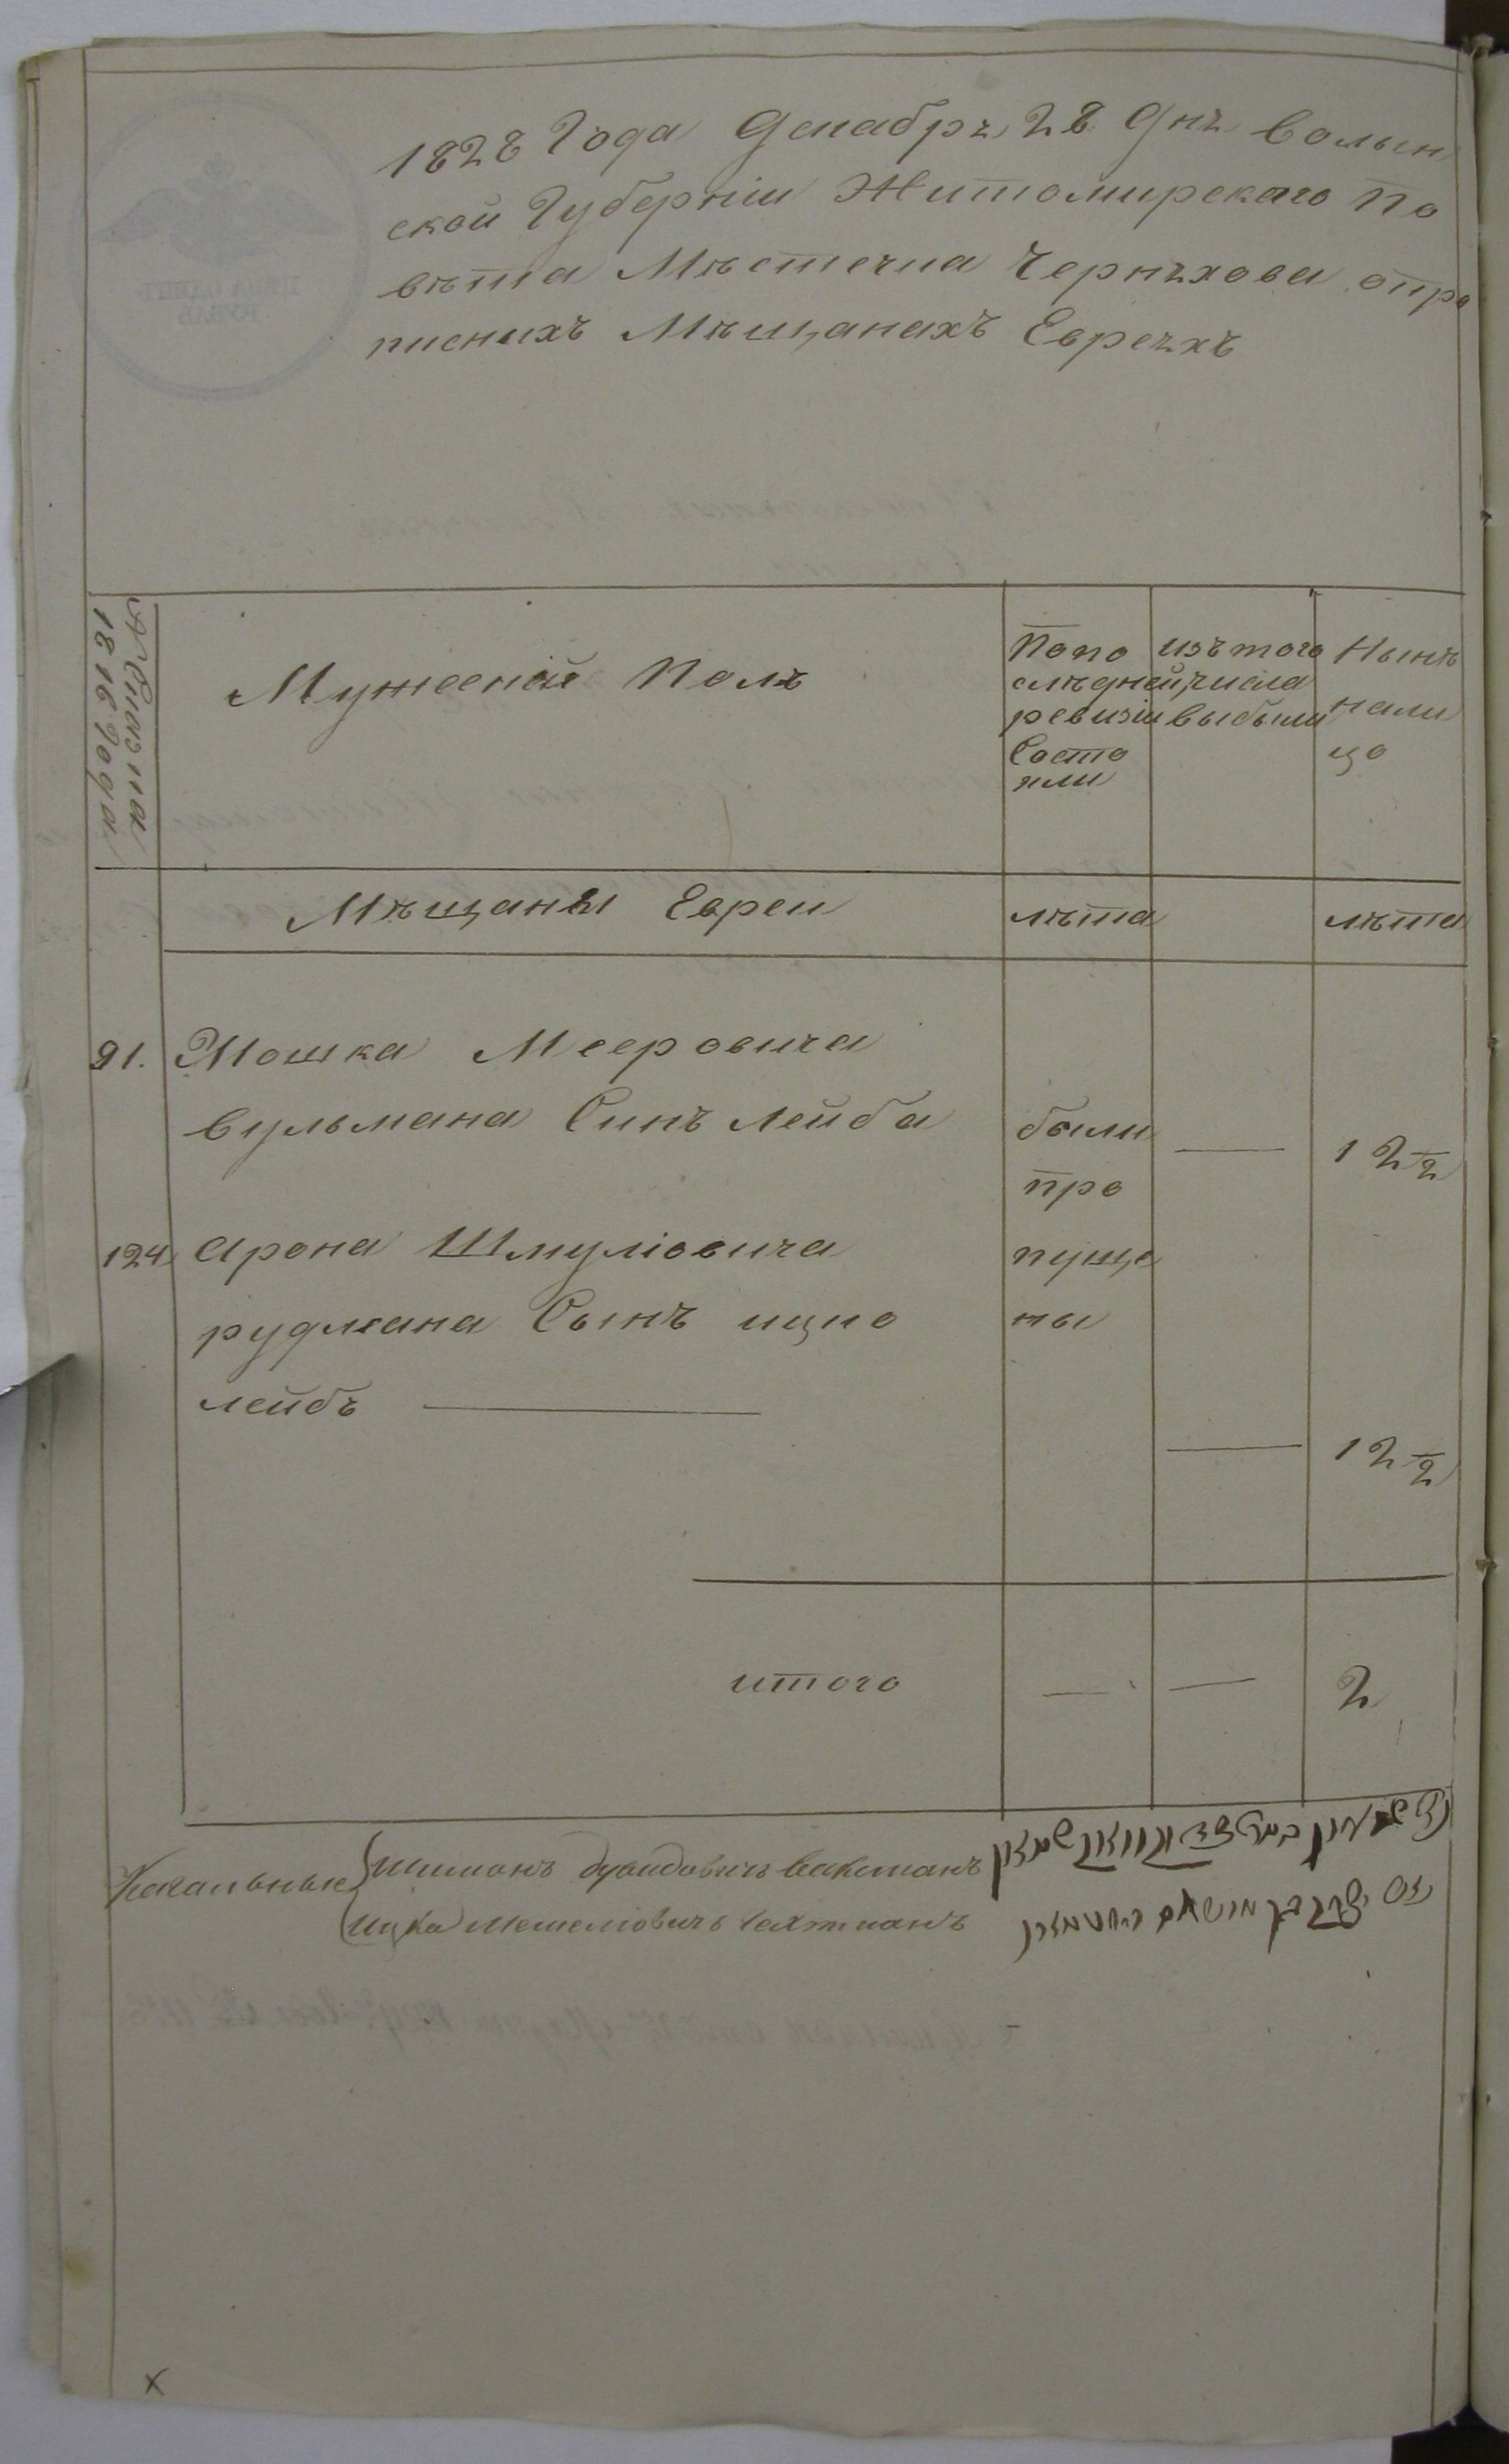 1828 Года Декабря 28 дня Волын
ской Губерніи Житомирскаго По
вѣта Мѣстечка Черняхова опро
писнихъ Мѣщанахъ Евреяхъ
№ Сказка
1816 года
Мужеский Полъ
По по
слѣдней
ревизіи
Состо
яли
изъ того
числа
выбыли
Нынѣ
нали
цо
Мѣщаны Евреи
лѣта
лѣта
91. Мошка Мееровича
Вульмана Синъ Лейба
были
про
пуще
ны
12 ½
124 Арона Шмуліовича
рудмана Сынъ ицко
лейбъ
12 ½
итого
2
Кагальные
Шимонъ Дувидовичъ Ваксманъ
Ицка Мешеліовичъ